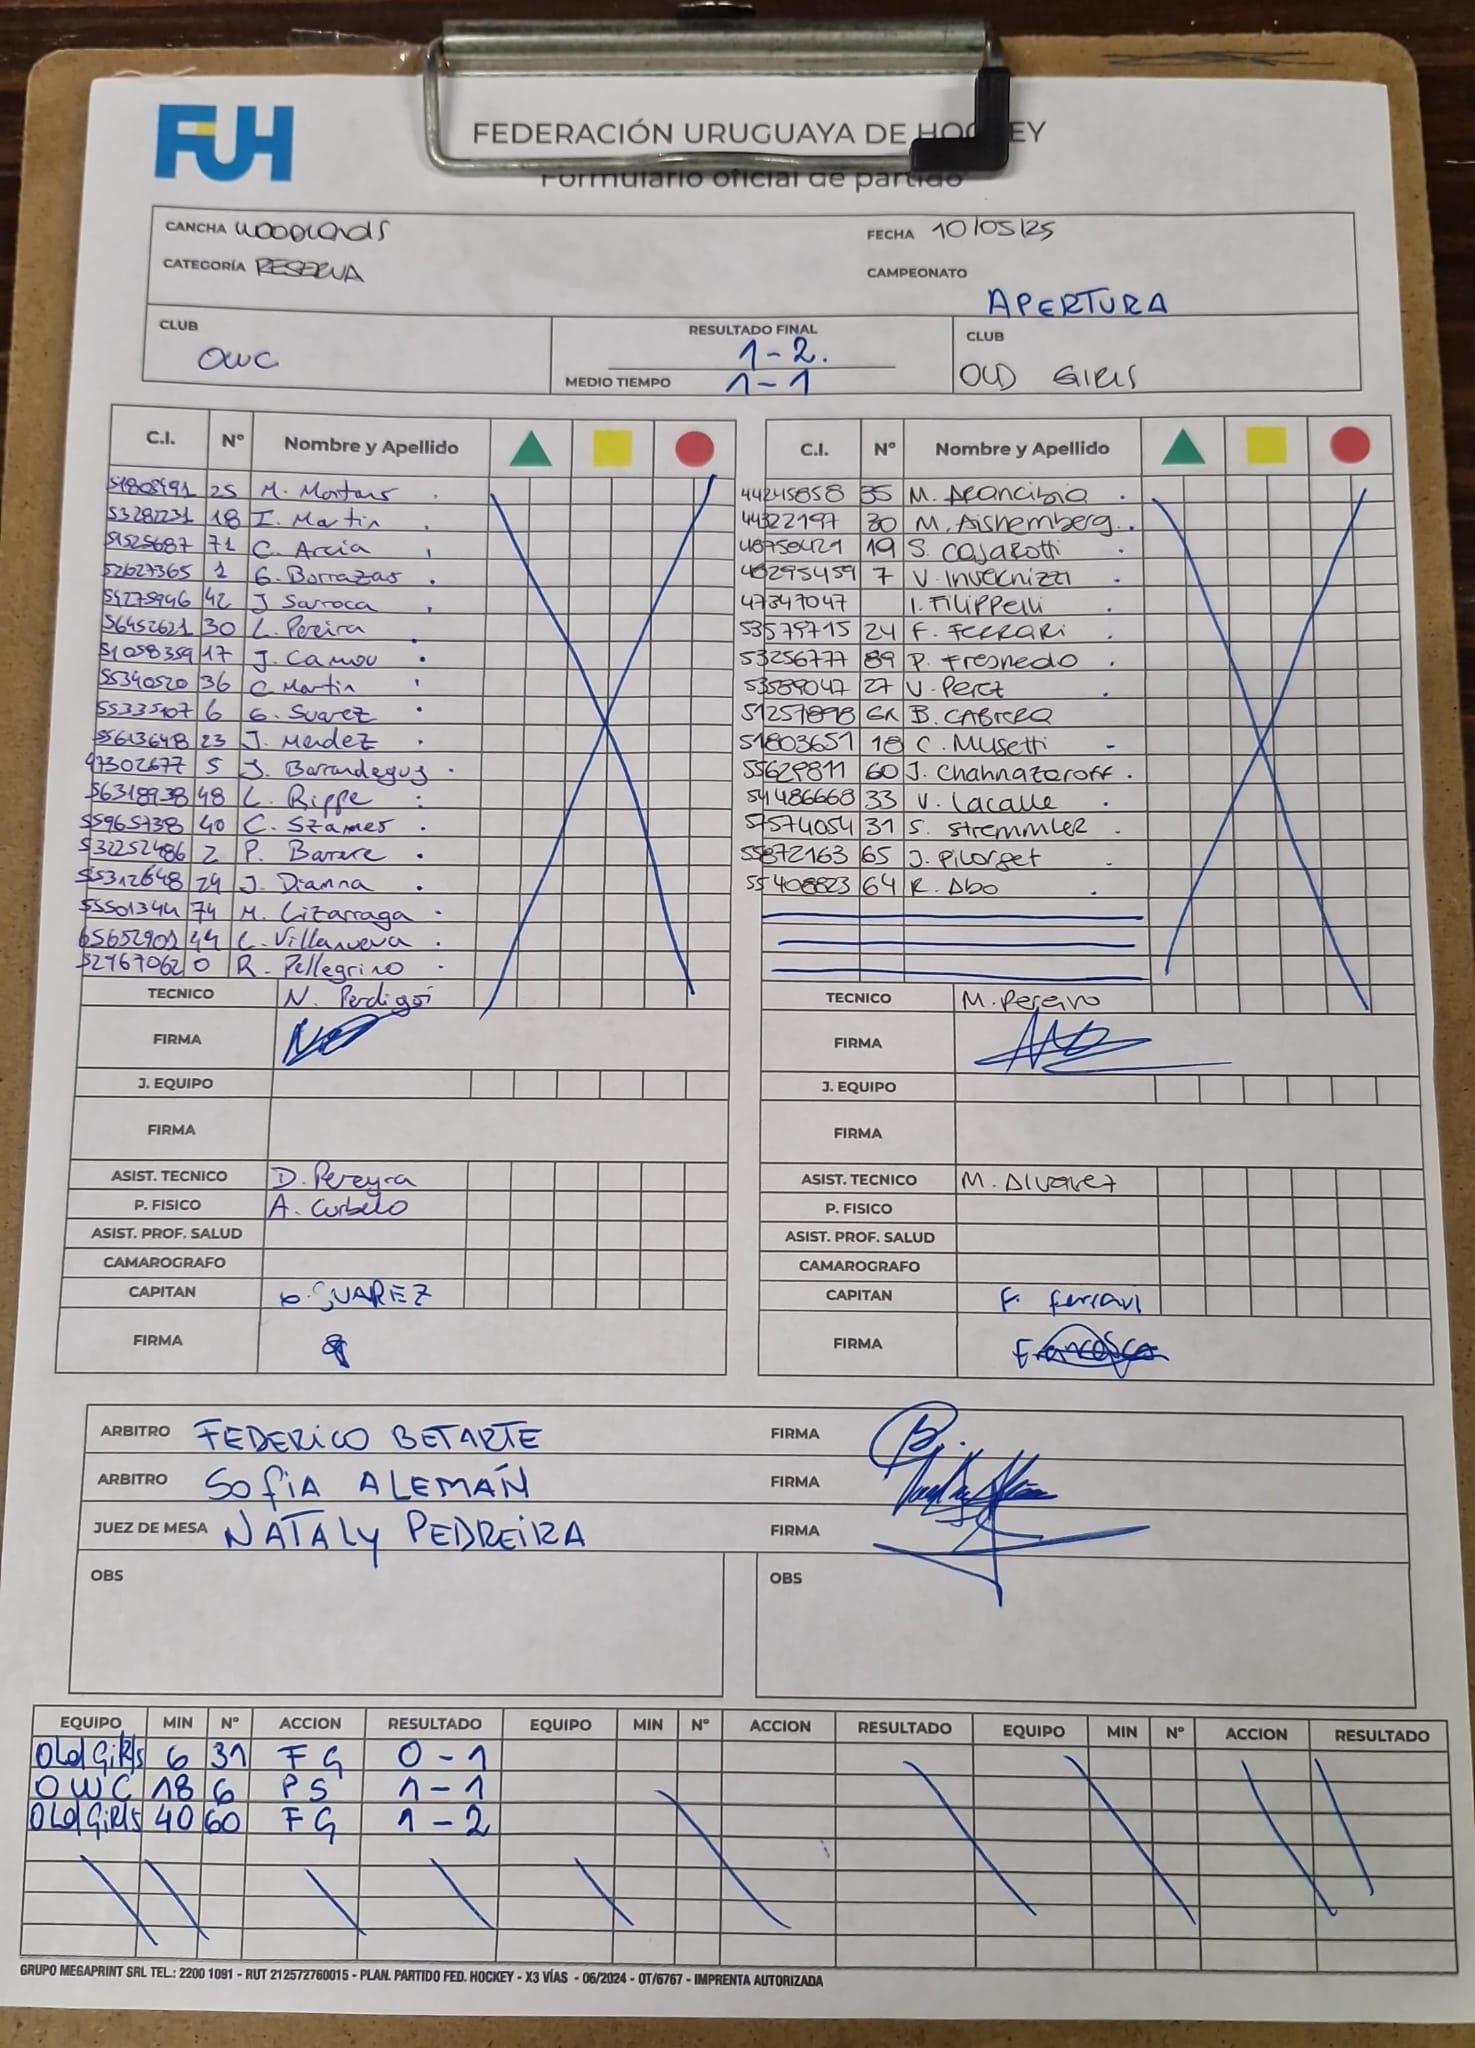 FUH
FEDERACIÓN URUGUAYA DE HOCKEY
Formulario oficial de partido
CANCHA WOODLANDS FECHA 10/05/25
CATEGORÍA RESERVA CAMPEONATO APERTURA
CLUB OWC RESULTADO FINAL 1-2. CLUB OLD GIRLS
MEDIO TIEMPO 1-1
C.I. Nº Nombre y Apellido C.I. Nº Nombre y Apellido
25 M. 44245858 35 M. Arancibia
53282231 18 I. Martin 44322197 30 M. Aishemberg
51525687 71 C. Arcia 48758421 19 S. Casarotti
52627365 1 G. Borrazas 40295459 7 V. Invernizzi
54275946 42 J Sarroca 47347047 I. FILIPPELLI
56452621 30 L. Pereira 53579715 24 F. FERRARI
51058359 17 J. Camou 53256777 89 P. Fresnedo
55340520 36 C Martin 53589047 27 V. Perez
55335107 6 G. Suarez 51257898 GK B. CABRERA
55613648 23 J. Mendez 51803651 18 C. Musetti
47302677 5 J. Barandeguy 55629811 60 J. Chahnazaroff
56318938 48 L. Rippe 54486668 33 V. Lacalle
55965738 40 C. Szames 57574054 31 S. Stremmler
532252486 2 P. Barere 55872163 65 J. Pilorget
55312648 24 J. Dianna 55408823 64 R. Abo
55501344 74 M. Lizarraga
55652901 44 L. Villanueva
52967062 0 R. Pellegrino
TECNICO N. Perdigoi TECNICO M. Peseiro
FIRMA FIRMA
J. EQUIPO J. EQUIPO
FIRMA FIRMA
ASIST. TECNICO D. Pereyra ASIST. TECNICO M. Alvarez
P. FISICO A. Curbelo P. FISICO
ASIST. PROF. SALUD ASIST. PROF. SALUD
CAMAROGRAFO CAMAROGRAFO
CAPITAN G. SUAREZ CAPITAN F. Ferrari
FIRMA FIRMA Francesca
ARBITRO FEDERICO BETARTE FIRMA
ARBITRO SOFIA ALEMÁN FIRMA
JUEZ DE MESA NATALY PEDREIRA FIRMA
OBS OBS
EQUIPO MIN Nº ACCION RESULTADO EQUIPO MIN Nº ACCION RESULTADO EQUIPO MIN Nº ACCION RESULTADO
Old Girls 6 31 FG 0-1
OWC 18 6 PS 1-1
Old Girls 40 60 FG 1-2
GRUPO MEGAPRINT SRL TEL.: 2200 1091 - RUT 212572760015 - PLAN. PARTIDO FED. HOCKEY - X3 VÍAS - 06/2024 - OT/6767 - IMPRENTA AUTORIZADA